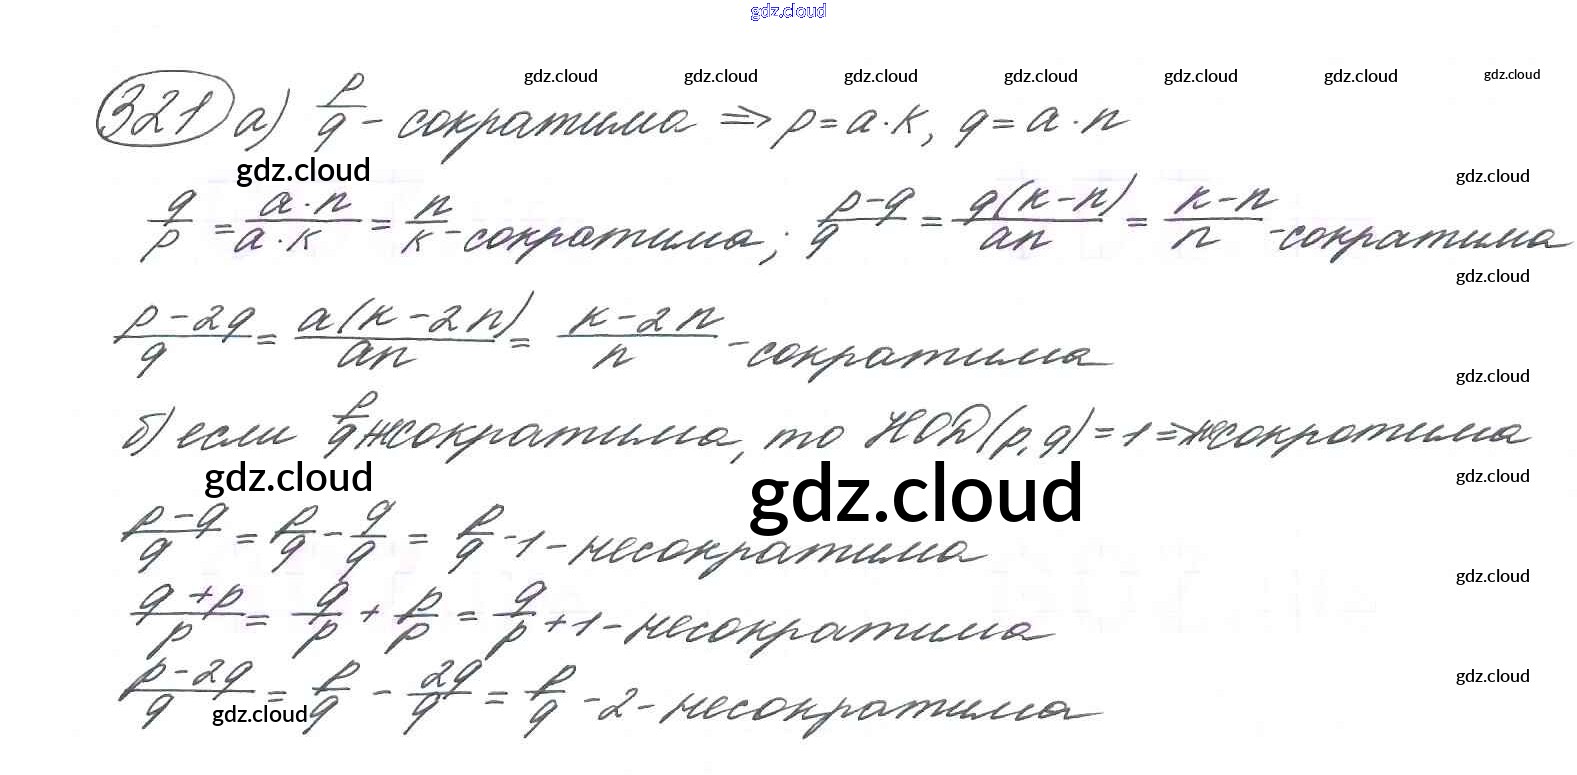 gdz.cloud
gdz.cloud gdz.cloud gdz.cloud gdz.cloud gdz.cloud gdz.cloud gdz.cloud
321 а) p/q - сократима ⇒ p = a·k, q = a·n
gdz.cloud gdz.cloud
q/p = a·n/a·k = n/k - сократима; p-q/q = q(k-n)/an = k-n/n - сократима
gdz.cloud
p-2q/q = a(k-2n)/an = k-2n/n - сократима
gdz.cloud
б) если p/q несократима, то НОД(p,q)=1 ⇒ несократима
gdz.cloud gdz.cloud gdz.cloud
p-q/q = p/q - q/q = p/q - 1 - несократима
gdz.cloud
q+p/p = q/p + p/p = q/p + 1 - несократима
gdz.cloud
p-2q/q = p/q - 2q/q = p/q - 2 - несократима
gdz.cloud